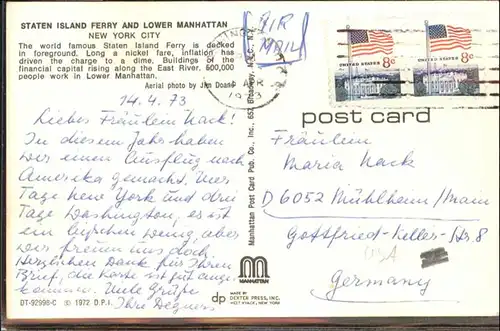 STATEN ISLAND FERRY AND LOWER MANHATTAN
NEW YORK CITY
The world famous Staten Island Ferry is docked
in foreground. Long a nickel fare, inflation has
driven the charge to a dime. Buildings of the
financial capital rising along the East River. 500,000
people work in Lower Manhattan.
Aerial photo by Jim Doane
14.4.73
Liebes Fräulein Nack!
In diesem Jahr haben
wir einen Ausflug nach
Amerika gemacht. Vier
Tage New York und drei
Tage Washington, es ist
ein bißchen wenig, aber
wir freuen uns doch
Herzlichen Dank für Ihren
Brief, die Karte ist gut ange
kommen. Viele Grüße
Ihre Degners
DT-92998-C © 1972 D.P.I.
Manhattan Post Card Pub. Co., Inc., 853 Broadway, N.Y.C.
MANHATTAN
dp MADE BY
DEXTER PRESS, INC.
WEST NYACK, NEW YORK
AIR
MAIL
1973
8c
UNITED STATES
8c
UNITED STATES
post card
Fräulein
Maria Nack
D 6052 Mühlheim/Main
Gottfried-Keller-Str. 8
USA
Germany